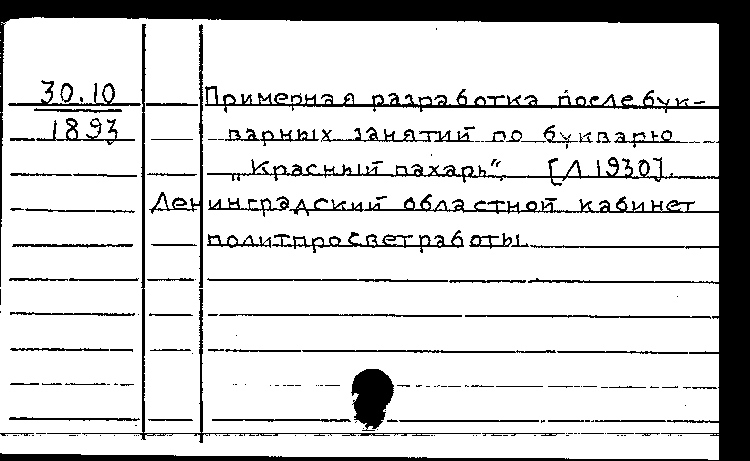 30.10
1893
Примерная разработка послебук-
варных занятий по букварю
„Красный пахарь“. [Л 1930].
Ленинградский областной кабинет
политпросветработы.